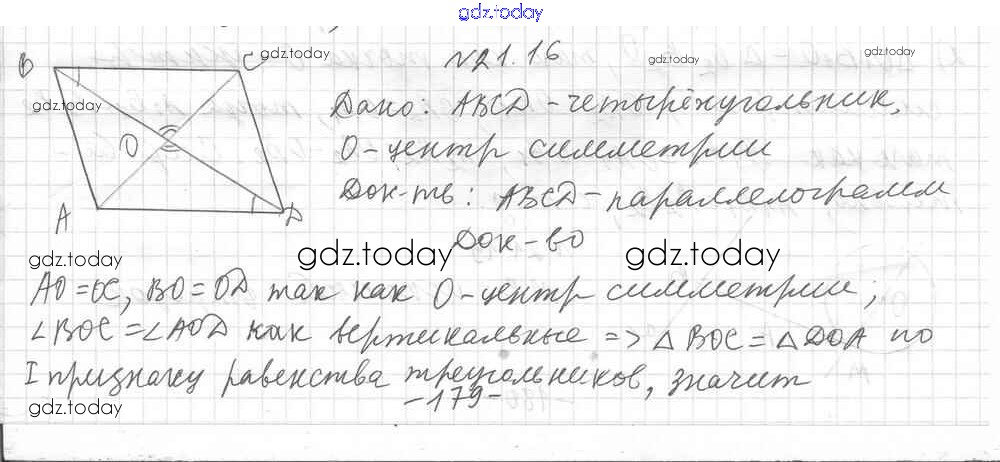 gdz.today
№21.16
B
C
gdz.today
gdz.today
gdz.today
gdz.today
Дано: ABCD - четырёхугольник,
O
O - центр симметрии
Док-ть: ABCD - параллелограмм
A
D
Док-во
gdz.today
gdz.today
gdz.today
AO = OC, BO = OD так как O - центр симметрии;
∠BOC = ∠AOD как вертикальные => △BOC = △DOA по
I признаку равенства треугольников, значит
gdz.today
-179-